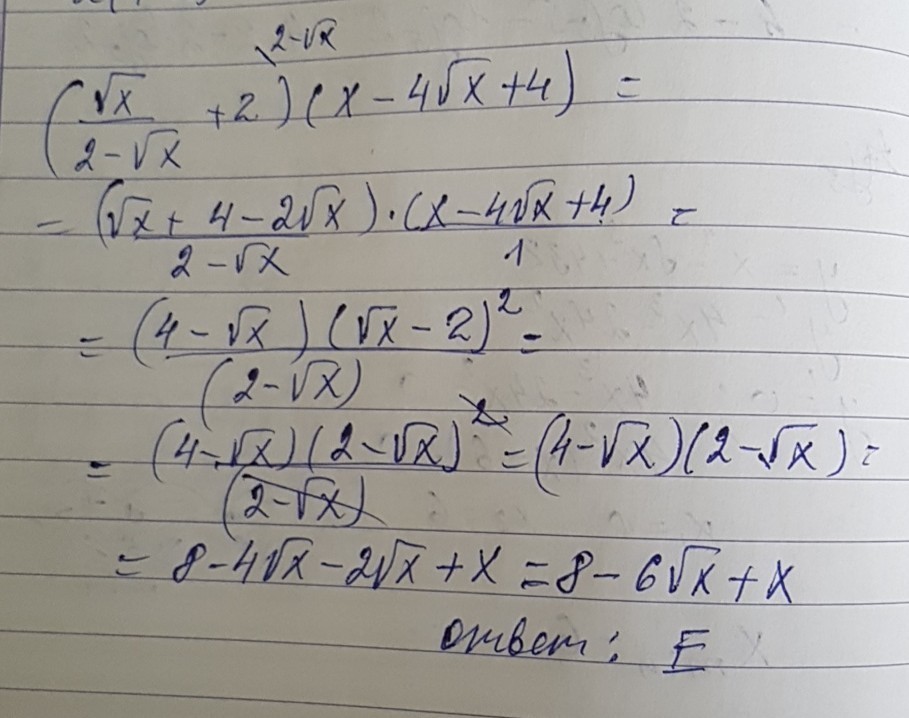 (√x / (2-√x) + 2 \2-√x) (x - 4√x + 4) =
= (√x + 4 - 2√x) / (2 - √x) · (x - 4√x + 4) / 1 =
= (4 - √x) (√x - 2)² / (2 - √x) =
= (4-√x) (2-√x)² / (2-√x) = (4-√x) (2-√x) =
= 8 - 4√x - 2√x + x = 8 - 6√x + x
ответ: E